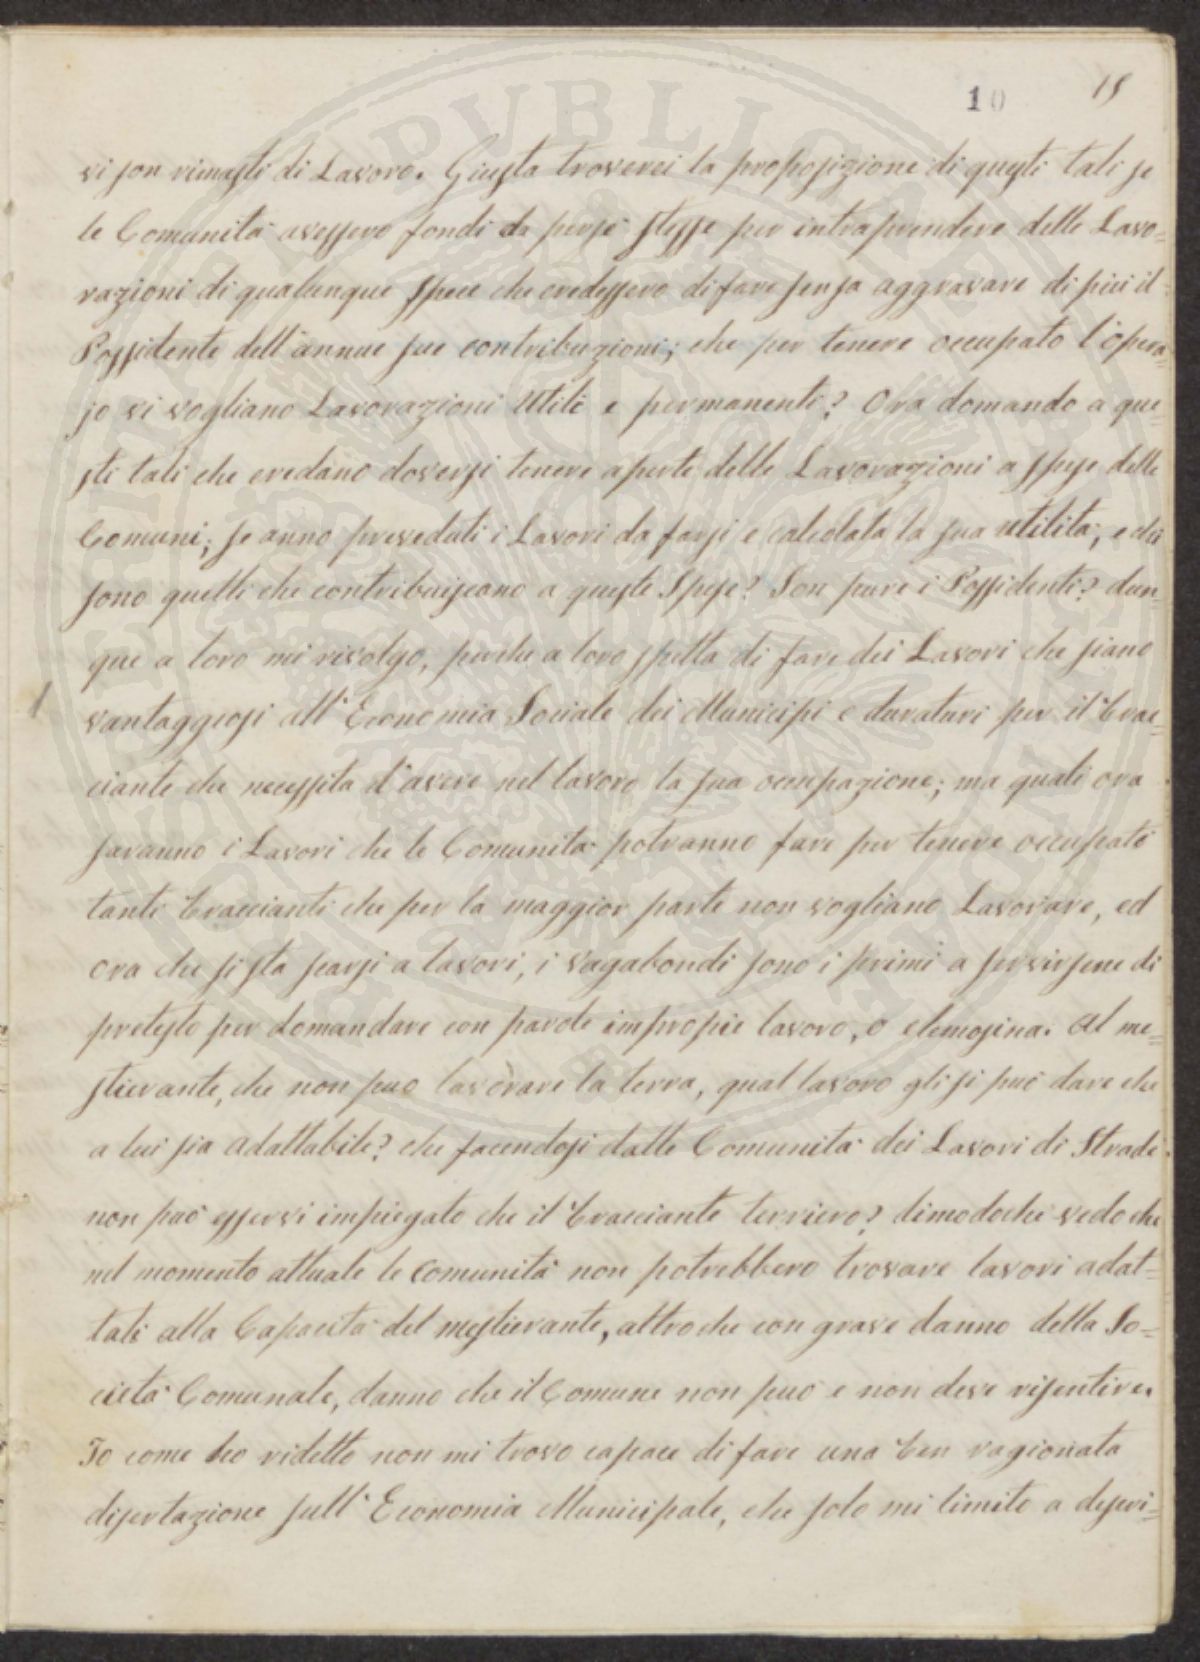 10 15
vi son rimasti di Lavoro. Giusta troverei la proposizione di questi tali se
le Comunità avessero fondi da persè stesse per intraprendere delle Lavo=
razioni di qualunque spece che credessero di fare senza aggravare di più il
Possidente dell'annue sue contribuzioni; che per tenere occupato l'opera=
jo vi vogliano Lavorazioni Utili e permanenti? Ora domando a que=
sti tali che credano doversi tenere aperte delle Lavorazioni a spese delle
Comuni; se anno preveduti i Lavori da farsi e calcolata la sua utilità; e chi
sono quelli che contribuiscano a queste Spese? Son pure i Possidenti? dun=
que a loro mi rivolgo, perche a loro spetta di fare dei Lavori che siano
vantaggiosi all'Economia Sociale dei Municipi e duraturi per il brac=
ciante che necessita d'avere nel lavoro la sua occupazione; ma quali ora
saranno i Lavori che le Comunità potranno fare per tenere occupati
tanti braccianti che per la maggior parte non vogliano Lavorare, ed
ora che si sta scarsi a lavori, i vagabondi sono i primi a servirsene di
pretesto per domandare con parole improprie lavoro, o elemosina. Al me=
stierante, che non può lavorare la terra, qual lavoro gli si può dare che
a lui sia adattabile? che facendosi dalle Comunità dei Lavori di Strade
non può esservi impiegato che il bracciante terriero? dimodochè vedo che
nel momento attuale le comunità non potrebbero trovare lavori adat=
tati alla Capacità del mestierante, altro che con grave danno della So=
cietà Comunale, danno che il Comune non può e non deve risentire.
Io come ho ridetto non mi trovo capace di fare una ben ragionata
disertazione sull'Economia Municipale, che solo mi limito a descri=